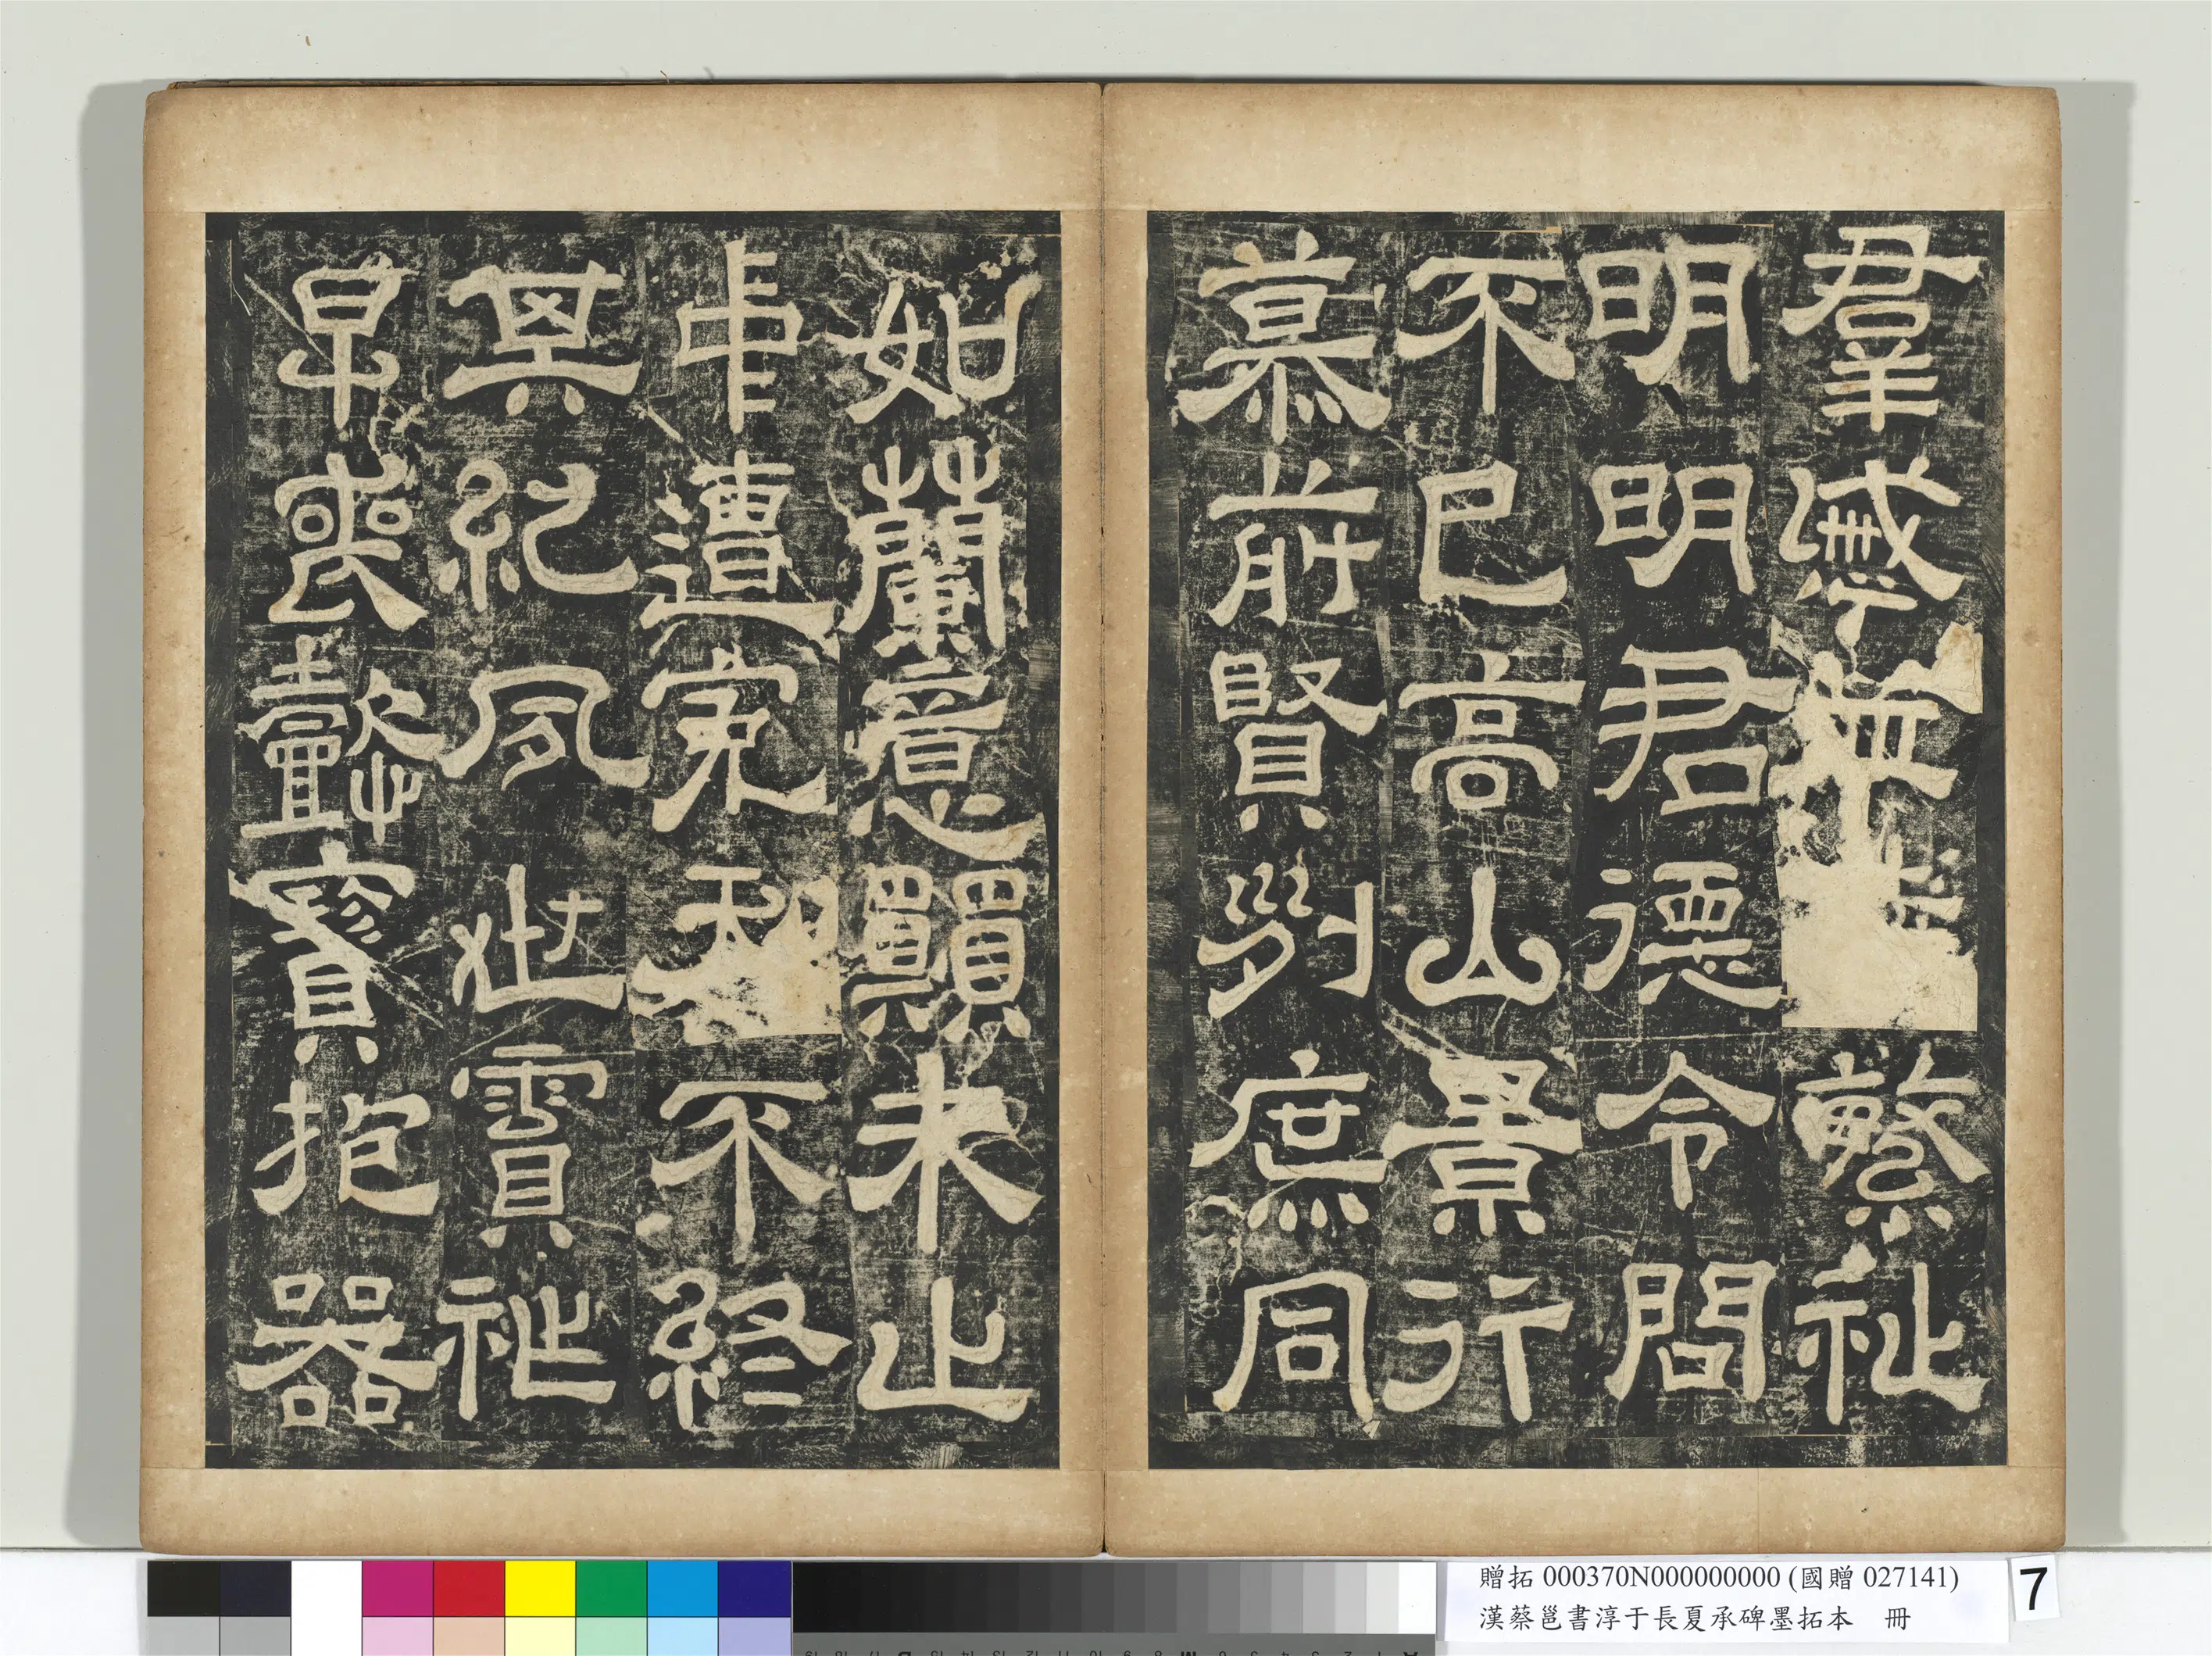 羣慼並繁祉
明明君德令問
不已高山景行
慕前賢列庶同
如蘭意願未止
中遭冤夭不終
其紀夙世霣祚
早喪懿寶抱器
贈拓 000370N000000000 (國贈 027141)
漢蔡邕書淳于長夏承碑墨拓本　冊
7